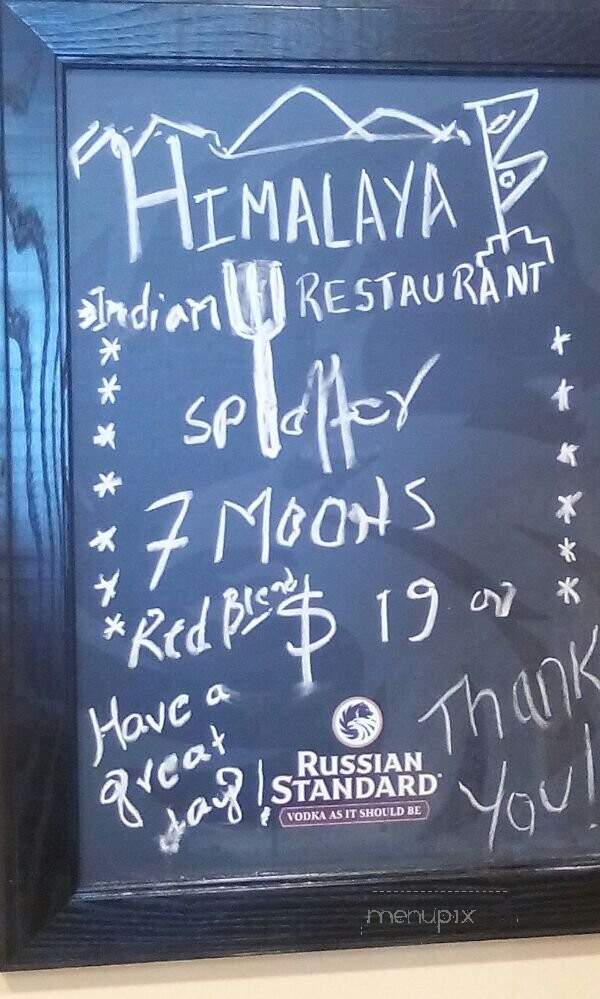 HIMALAYA
Indian RESTAURANT
7 MOONS
Red Blend $ 19
Have a
great
day!
Thank
You!
RUSSIAN
STANDARD
VODKA AS IT SHOULD BE
menupix